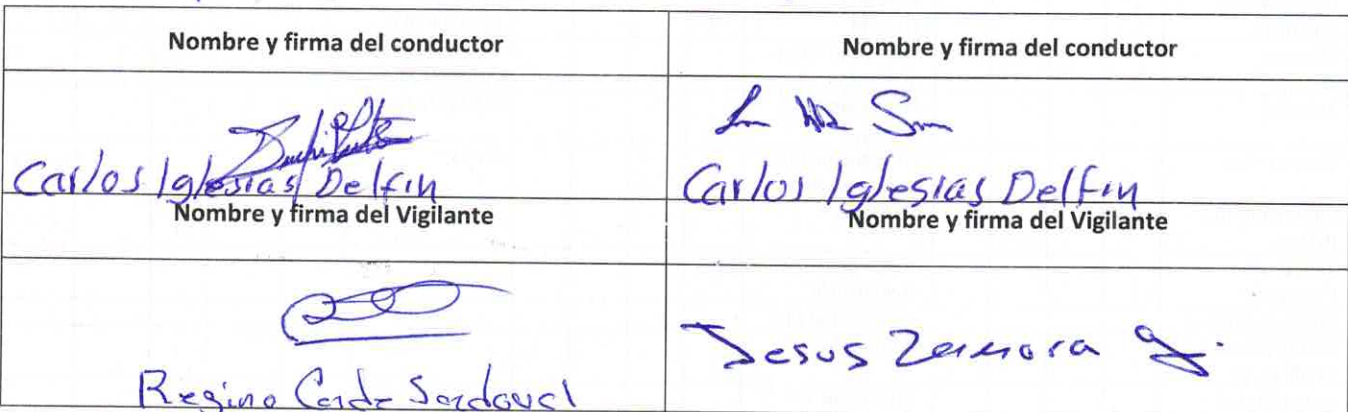 Nombre y firma del conductor
Nombre y firma del conductor
Carlos Iglesias Delfin
Carlos Iglesias Delfin
Nombre y firma del Vigilante
Nombre y firma del Vigilante
Jesus Zamora
Regino Sandoval